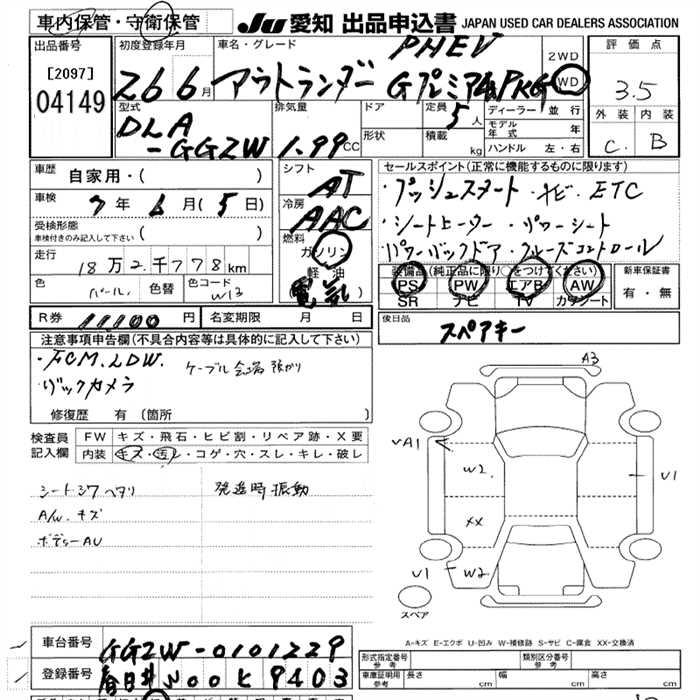 車内保管・守衛保管 JU 愛知 出品申込書 JAPAN USED CAR DEALERS ASSOCIATION
出品番号 初度登録年月 車名・グレード 評価点
[2097]
04149
Z6 6月 アウトランダー PHEV Gプレミアム PKG 2WD WD
3.5
型式 排気量 ドア 定員 5人 ディーラー 並行
モデル年式 年
外装 内装
形状 積載 kg ハンドル 左・右
DLA
-GG2W 1.99CC
C. B
車歴 自家用・( )
車検 7年6月(5日)
受検形態
車検付きのみ記入して下さい ( )
走行 18万2千778km
色 パール. 色替 色コード W13
シフト AT
冷房 AAC
燃料 ガソリン
軽油
(電気)
セールスポイント(正常に機能するものに限ります)
・プッシュスタート・ナビ・ETC
・シートヒーター・パワーシート
・パワーバックドア・クルーズコントロール
装備品(純正品に限り○をつけてください) 新車保証書
PS PW エアB AW
SR ナビ TV カワシート
有・無
R券 11100円 名変期限 月 日
後日品 スペアキー
注意事項申告欄(不具合内容等は具体的に記入して下さい)
・FCM.LDW. ケーブル
・バックカメラ
修復歴 有(箇所 )
検査員記入欄 FW キズ・飛石・ヒビ割・リペア跡・X要
内装 キズ・汚レ・コゲ・穴・スレ・キレ・破レ
シートシワヘタリ 発進時振動
A/W. キズ
ボディーAU
A3
VA1
W2
XX
U1
U1 W2
スペア
A-キズ E-エクボ U-凹み W-補修跡 S-サビ C-腐食 XX-交換済
車台番号 GG2W-0101229
登録番号 春日井 300 と 9403
形式指定番号 参考 類別区分番号 参考
車庫証明用 参考 長さ cm 幅 cm 高さ cm